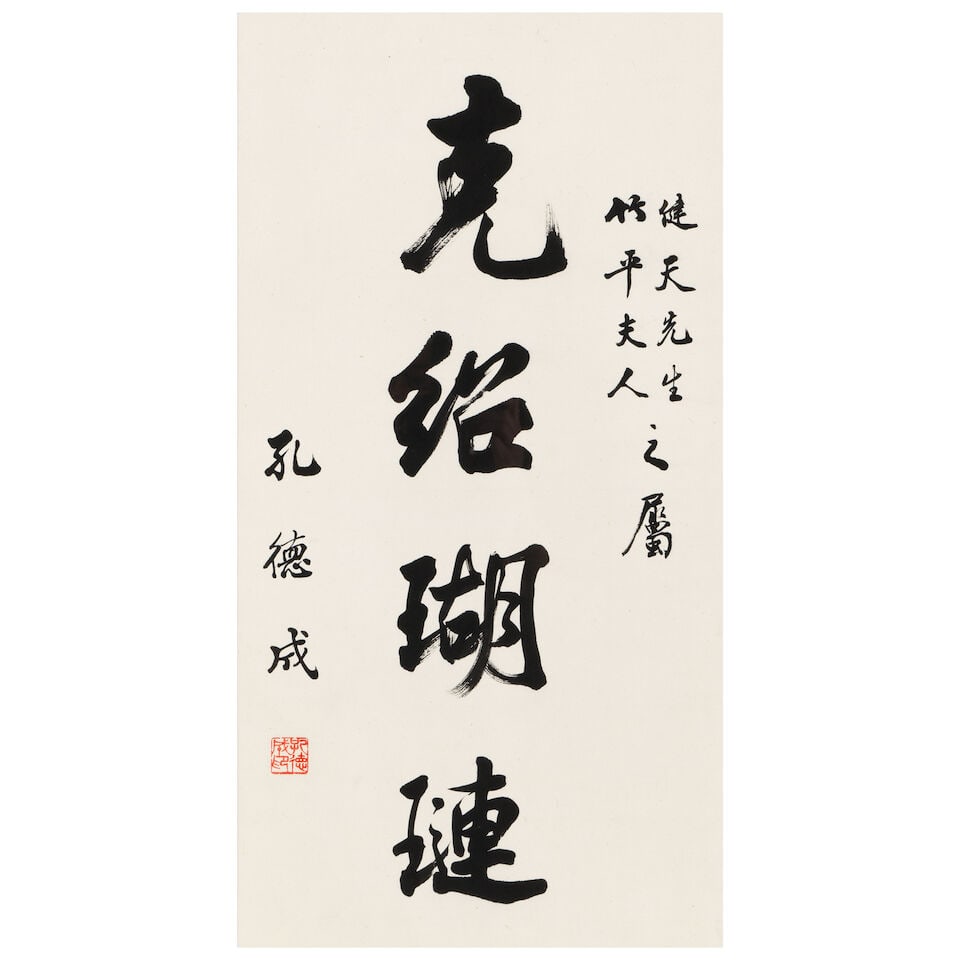 健天先生
竹平夫人
之屬
克紹瑚璉
孔德成
孔德成印